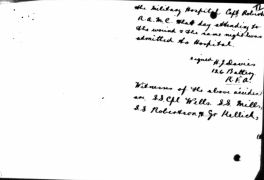 the Military Hospital Capt
R.A.M.C. that day attending to
the wound & the same night was
admitted to Hospital.
signed H J Davies
126 Battery
R.F.A.
Witnesses of the above accident
are S.S. Cpl Wells. S.S. Mills,
S.S. Robertson & Gr